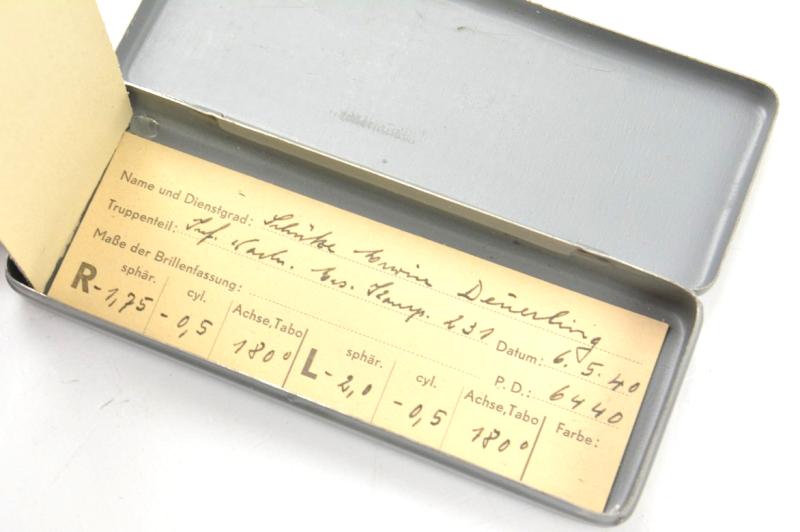 Name und Dienstgrad: Schütze Erwin Deuerling
Truppenteil: Inf. Nachr. Ers. Komp. 231 Datum: 6.5.40
Maße der Brillenfassung: P.D.: 6440
R sphär. -1,75 cyl. -0,5 Achse, Tabo 180° L sphär. -2,0 cyl. -0,5 Achse, Tabo 180° Farbe: